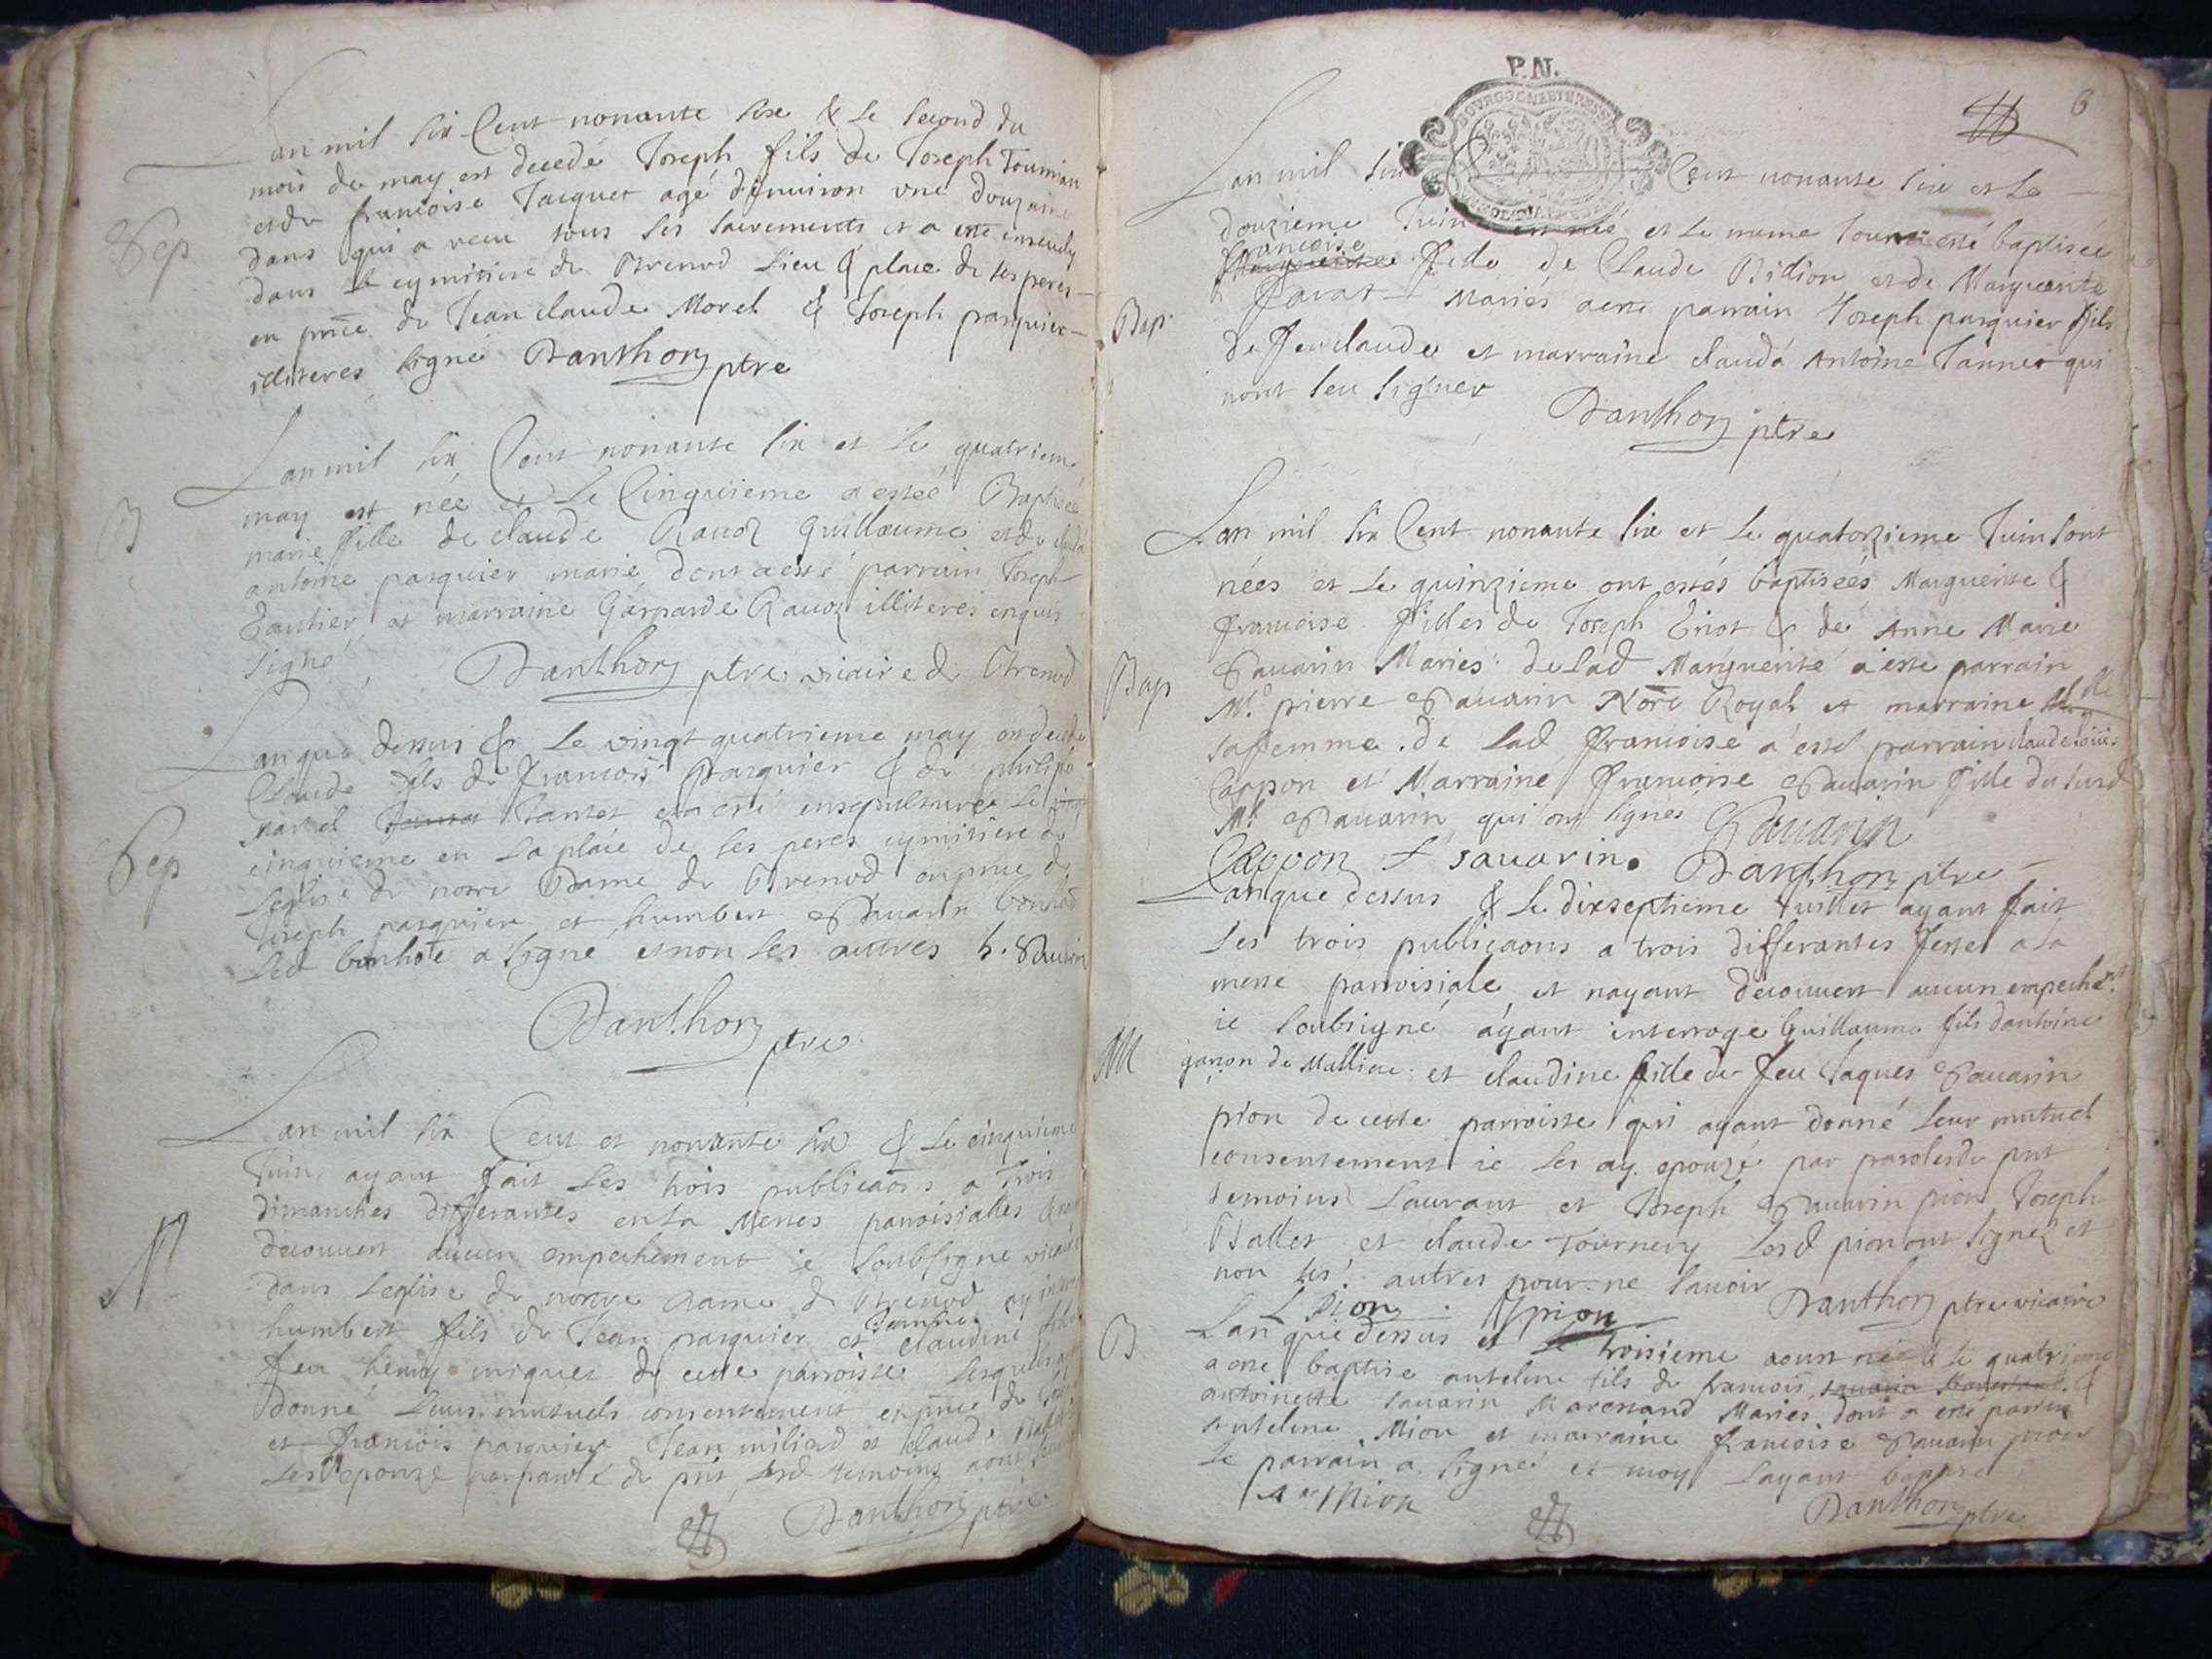 Lan mil six Cent nonante sixe & le second du
mois de may est decedé Joseph fils de Joseph Tournian
et de francoise Jacquet agé denuiron une douzaine
Sep
dans qui a receu tous ses sacrements et a esté enseuely
dans le cymitiere de Brenod lieu & place de ses peres
en pnce de Jean claude Morel & Joseph pasquier
illiteres signé Danthon ptre
Lan mil six Cent nonante six et le quatrieme
may est née et le Cinquieme a esteé Baptisée
B
marie fille de claude Rauoz Guillaume et de clauda
antoine pasquier marié dont a esté parrain Joseph
Gautier et marraine Gasparde Rauoz illiteres enquis
signé Danthon ptre vicaire de Brenod
Lan que dessus & le vingt quatrieme may est decedé
Claude fils de francois Pasquier & de philipe
Marcel Jantet et a esté ensepulturé le vingt
Sep
cinquieme en la place de ses peres cymitiere de
leglise de notre Dame de Brenod en pnce de
Joseph pasquier et humbert Sauarin bonhoe
led bonhote a signé et non les autres h. Sauarin
Danthon ptre
Lan mil six Cent et nonante six & le cinquieme
Juin ayant fait les trois publicaons a trois
dimanches differantes en la Messes parroisialles & nayant
decouuert aucun empechement ie soubsigne vicaire
M
dans leglise de notre dame de Brenod ay
humbert fils de Jean pasquier et Jeanne claudine fille
feu henry miquet de cette parroisse lesquels ayant
donné leurs mutuels consentement en pnce de Joseph
et francois pasquier Jean miliod et claude Ballet
les epouzé par parole de pnt lesd temoins nont sceu
Danthon ptre
P.N.
6
Lan mil six Cent nonante six et le
douzieme Juin est née et le meme Jour a esté baptisée
francoise
fille de Claude Billion et de Marguerite
Bap
Sauar Mariés a esté parrain Joseph pasquier fils
de feu claude et marraine clauda Antoine Jannet qui
nont sceu signer
Danthon ptre
Lan mil six Cent nonante six et le quatorzieme Juin sont
nées et le quinzieme ont estés baptiseés Marguerite &
francoise filles de Joseph Eriot & de Anne Marie
Sauarin Mariés de lad Marguerite a esté parrain
Bap
Mr. pierre Sauarin Nore Royal et marraine
sa femme. de lad francoise a esté parrain claude louis
Cappon et Marraine francoise Sauarin fille du susd
Mr. Sauarin qui ont signés Sauarin
Cappon f sauarin. Danthon ptre
Lan que dessus & le dixseptieme Juillet ayant fait
les trois publicaons a trois differantes feste a la
messe parroisiale et nayant decouuert aucun empechemt
ie soubsigné ayant interrogé Guillaume fils dantoine
M
garson de Malliac et claudine fille de feu Jaques Sauarin
pion de cette parroisse qui ayant donné leur mutuel
consentement ie les ay epouzé par paroles de pnt
temoins Laurant et Joseph Sauarin pion Joseph
Ballet et claude Tournery lesd pion ont signez et
non les autres pour ne sauoir
L Pion J pion Danthon ptre vicaire
B
Lan que dessus et le troisieme aoust né & le quatrieme
a esté baptise antelme fils de francois &
antoinette sauarin Marchand Mariés dont a esté parrin
Antelme Mion et marraine francoise Sauarin pion
le parrain a signé et moy layant baptisé
A Mion
Danthon ptre